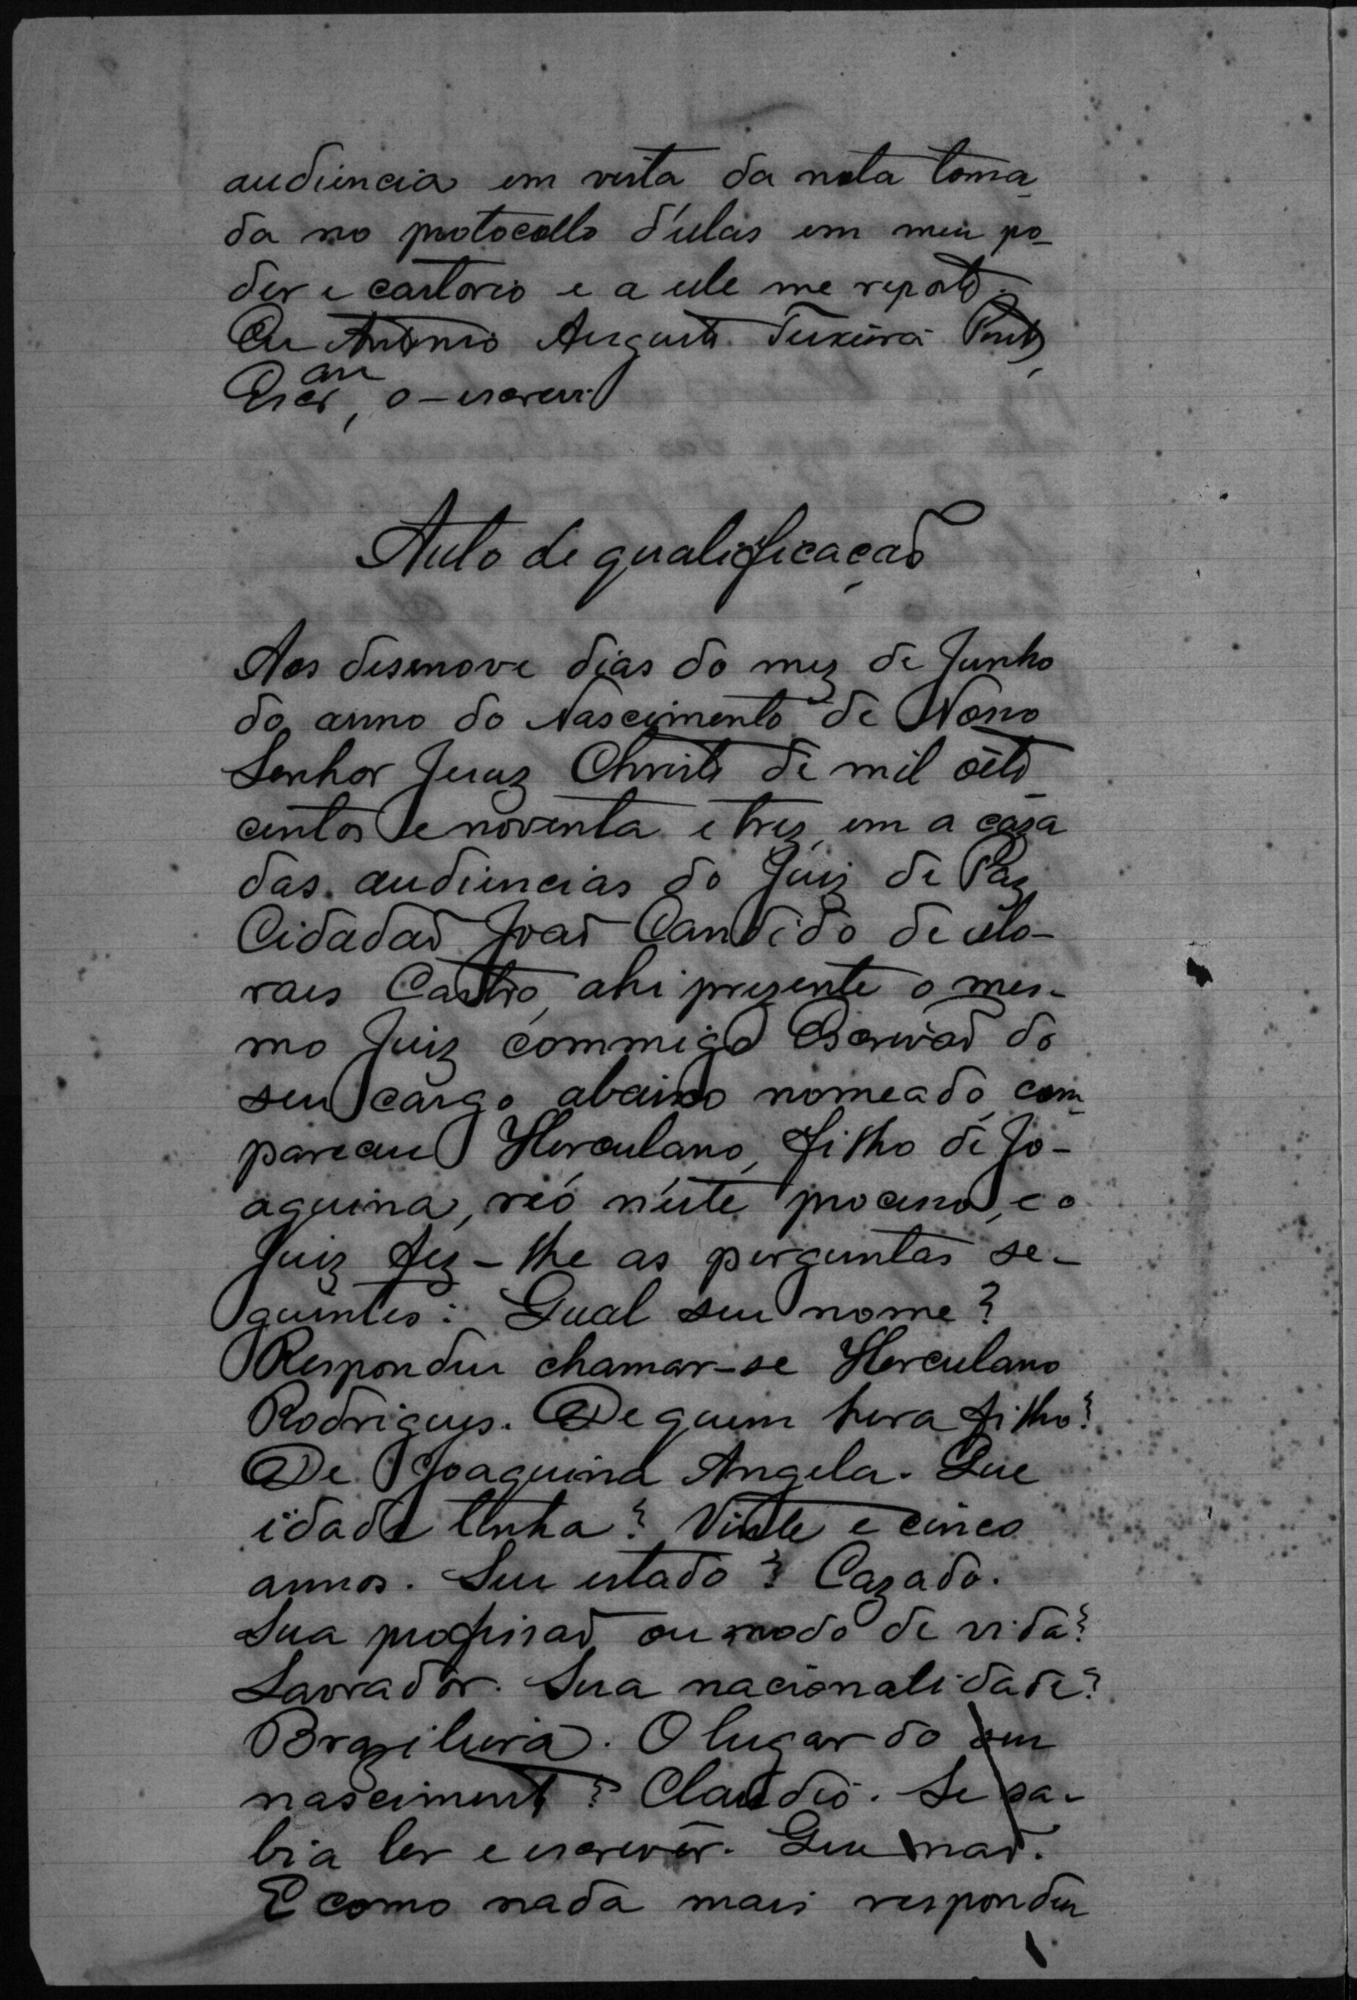 audiencia em vista da nota toma
da no protocollo d'ellas em meu po-
der e cartorio e a elle me reporto.
Eu Antonio Augusto Teixeira
Escr am, o escrevi
Auto de qualificação
Aos desenove dias do mez de Junho
do anno do Nascimento de Nosso
Senhor Jesuz Christo de mil oito
centos e noventa e trez, em a caza
das audiencias do Juiz de Paz
Cidadão João Candido de Mo-
raes Castro, ahi prezente o mes-
mo Juiz commigo Escrivão do
seu cargo abaixo nomeado, com-
pareceu Herculano, filho de Jo-
aquina, réo n'este processo, e o
Juiz fez-lhe as perguntas se-
guintes: Qual seu nome?
Respondeu chamar-se Herculano
Rodrigues. De quem hera filho?
De Joaquina Angela. Que
idade tinha? Vinte e cinco
annos. Seu estado? Cazado.
Sua profissão ou modo de vida?
Lavrador. Sua nacionalidade?
Brazileira. O lugar do seu
nascimento? Claudio. Se sa-
bia ler e escrever. Que não.
E como nada mais respondeu